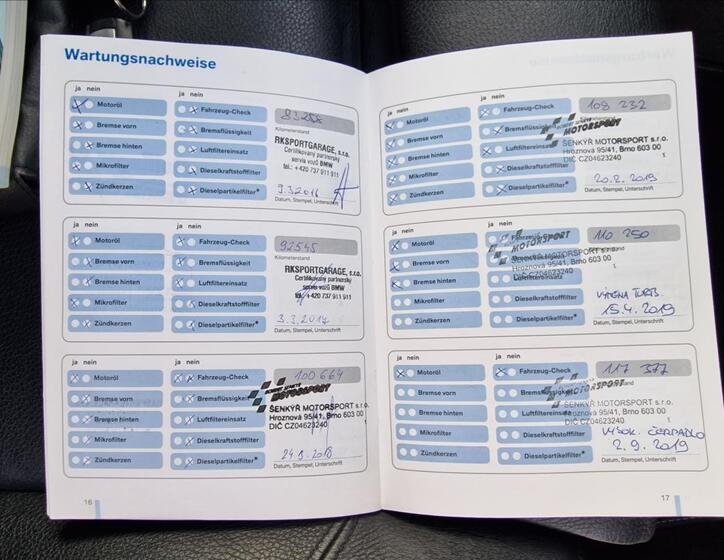 Wartungsnachweise
ja nein
ja nein
Motoröl
Fahrzeug-Check
83258
Bremse vorn
Bremsflüssigkeit
Kilometerstand
Bremse hinten
Luftfiltereinsatz
RKSPORTGARAGE, s.r.o.
Certifikovaný partnerský
servis vozů BMW
tel.: +420 737 911 911
Mikrofilter
Dieselkraftstofffilter
Zündkerzen
Dieselpartikelfilter*
9.3.2016
Datum, Stempel, Unterschrift
ja nein
ja nein
Motoröl
Fahrzeug-Check
92545
Bremse vorn
Bremsflüssigkeit
Bremse hinten
Luftfiltereinsatz
RKSPORTGARAGE, s.r.o.
Certifikovaný partnerský
servis vozů BMW
tel.: +420 737 911 911
Mikrofilter
Dieselkraftstofffilter
Zündkerzen
Dieselpartikelfilter*
3.3.2017
Datum, Stempel, Unterschrift
ja nein
ja nein
Motoröl
Fahrzeug-Check
100 664
Bremse vorn
Bremsflüssigkeit
MOTORSPORT
Bremse hinten
Luftfiltereinsatz
ŠENKÝŘ MOTORSPORT s.r.o.
Hroznová 95/41, Brno 603 00
DIČ CZ04623240
Mikrofilter
Dieselkraftstofffilter
Zündkerzen
Dieselpartikelfilter*
24.9.2018
Datum, Stempel, Unterschrift
16
ja nein
ja nein
Motoröl
Fahrzeug-Check
108 232
Bremse vorn
Bremsflüssigkeit
MOTORSPORT
Bremse hinten
Luftfiltereinsatz
ŠENKÝŘ MOTORSPORT s.r.o.
Hroznová 95/41, Brno 603 00
DIČ CZ04623240
Mikrofilter
Dieselkraftstofffilter
Zündkerzen
Dieselpartikelfilter*
20.2.2019
Datum, Stempel, Unterschrift
ja nein
ja nein
Motoröl
Fahrzeug-Check
110 250
MOTORSPORT
Bremse vorn
ŠENKÝŘ MOTORSPORT s.r.o.
Hroznová 95/41, Brno 603 00
DIČ CZ04623240
Bremse hinten
Luftfiltereinsatz
Mikrofilter
Dieselkraftstofffilter
Zündkerzen
Dieselpartikelfilter*
15.4.2019
Datum, Stempel, Unterschrift
ja nein
ja nein
Motoröl
Fahrzeug-Check
117 377
Bremse vorn
Bremsflüssigkeit
MOTORSPORT
Bremse hinten
Luftfiltereinsatz
ŠENKÝŘ MOTORSPORT s.r.o.
Hroznová 95/41, Brno 603 00
DIČ CZ04623240
Mikrofilter
Dieselkraftstofffilter
VYSOK. ČERPADLO
Zündkerzen
Dieselpartikelfilter*
2.9.2019
Datum, Stempel, Unterschrift
17